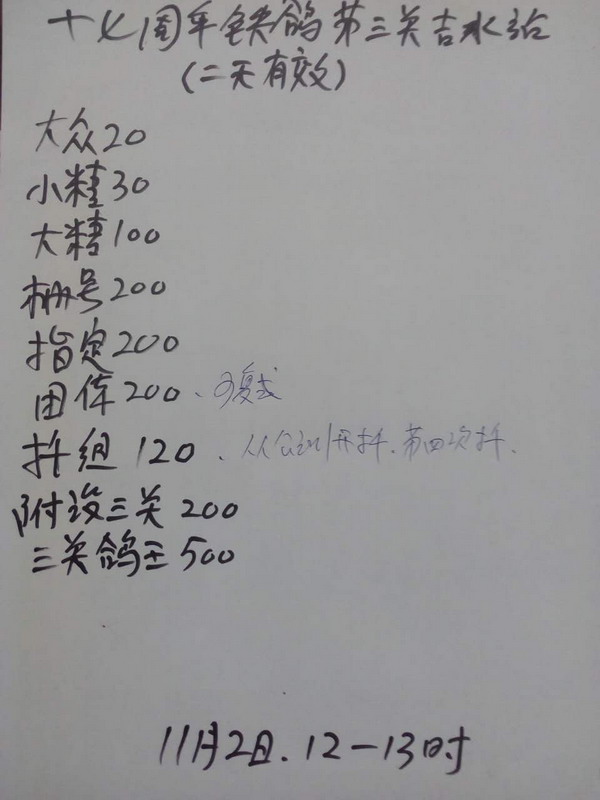 十七周年铁鸽第三关吉水站
(二天有效)
大众20
小精30
大精100
栅号200
指定200
团体200、可复式
扦组120、从会训开扦、第四次扦.
附设三关200
三关鸽王500
11月2日.12-13时